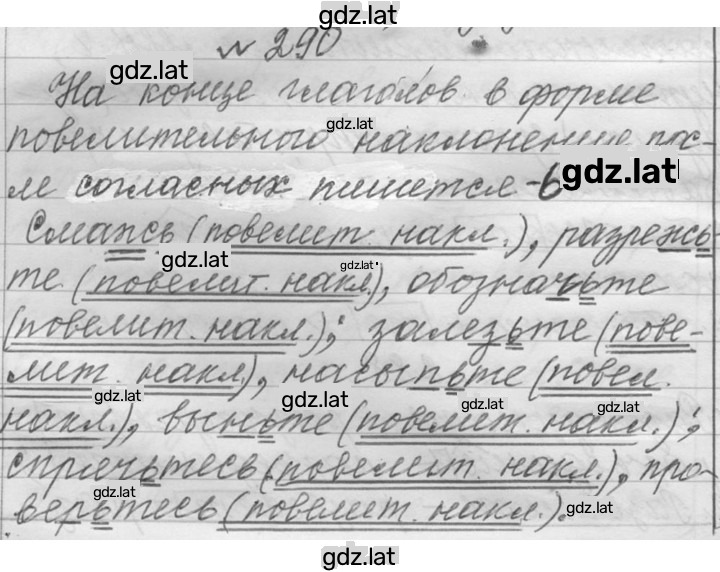 gdz.lat
№ 290
gdz.lat
На конце глаголов в форме
gdz.lat
повелительного наклонения пос-
ле согласных пишется -ь
gdz.lat
Смажь (повелит. накл.), разрежь-
gdz.lat
gdz.lat
те (повелит. накл.), обозначьте
(повелит. накл.); залезьте (пове-
лит. накл.), насыпьте (повел.
gdz.lat
gdz.lat
gdz.lat
gdz.lat
накл.), выньте (повелит. накл.);
спрячьтесь (повелит. накл.), про-
gdz.lat
верьтесь (повелит. накл.).
gdz.lat
gdz.lat